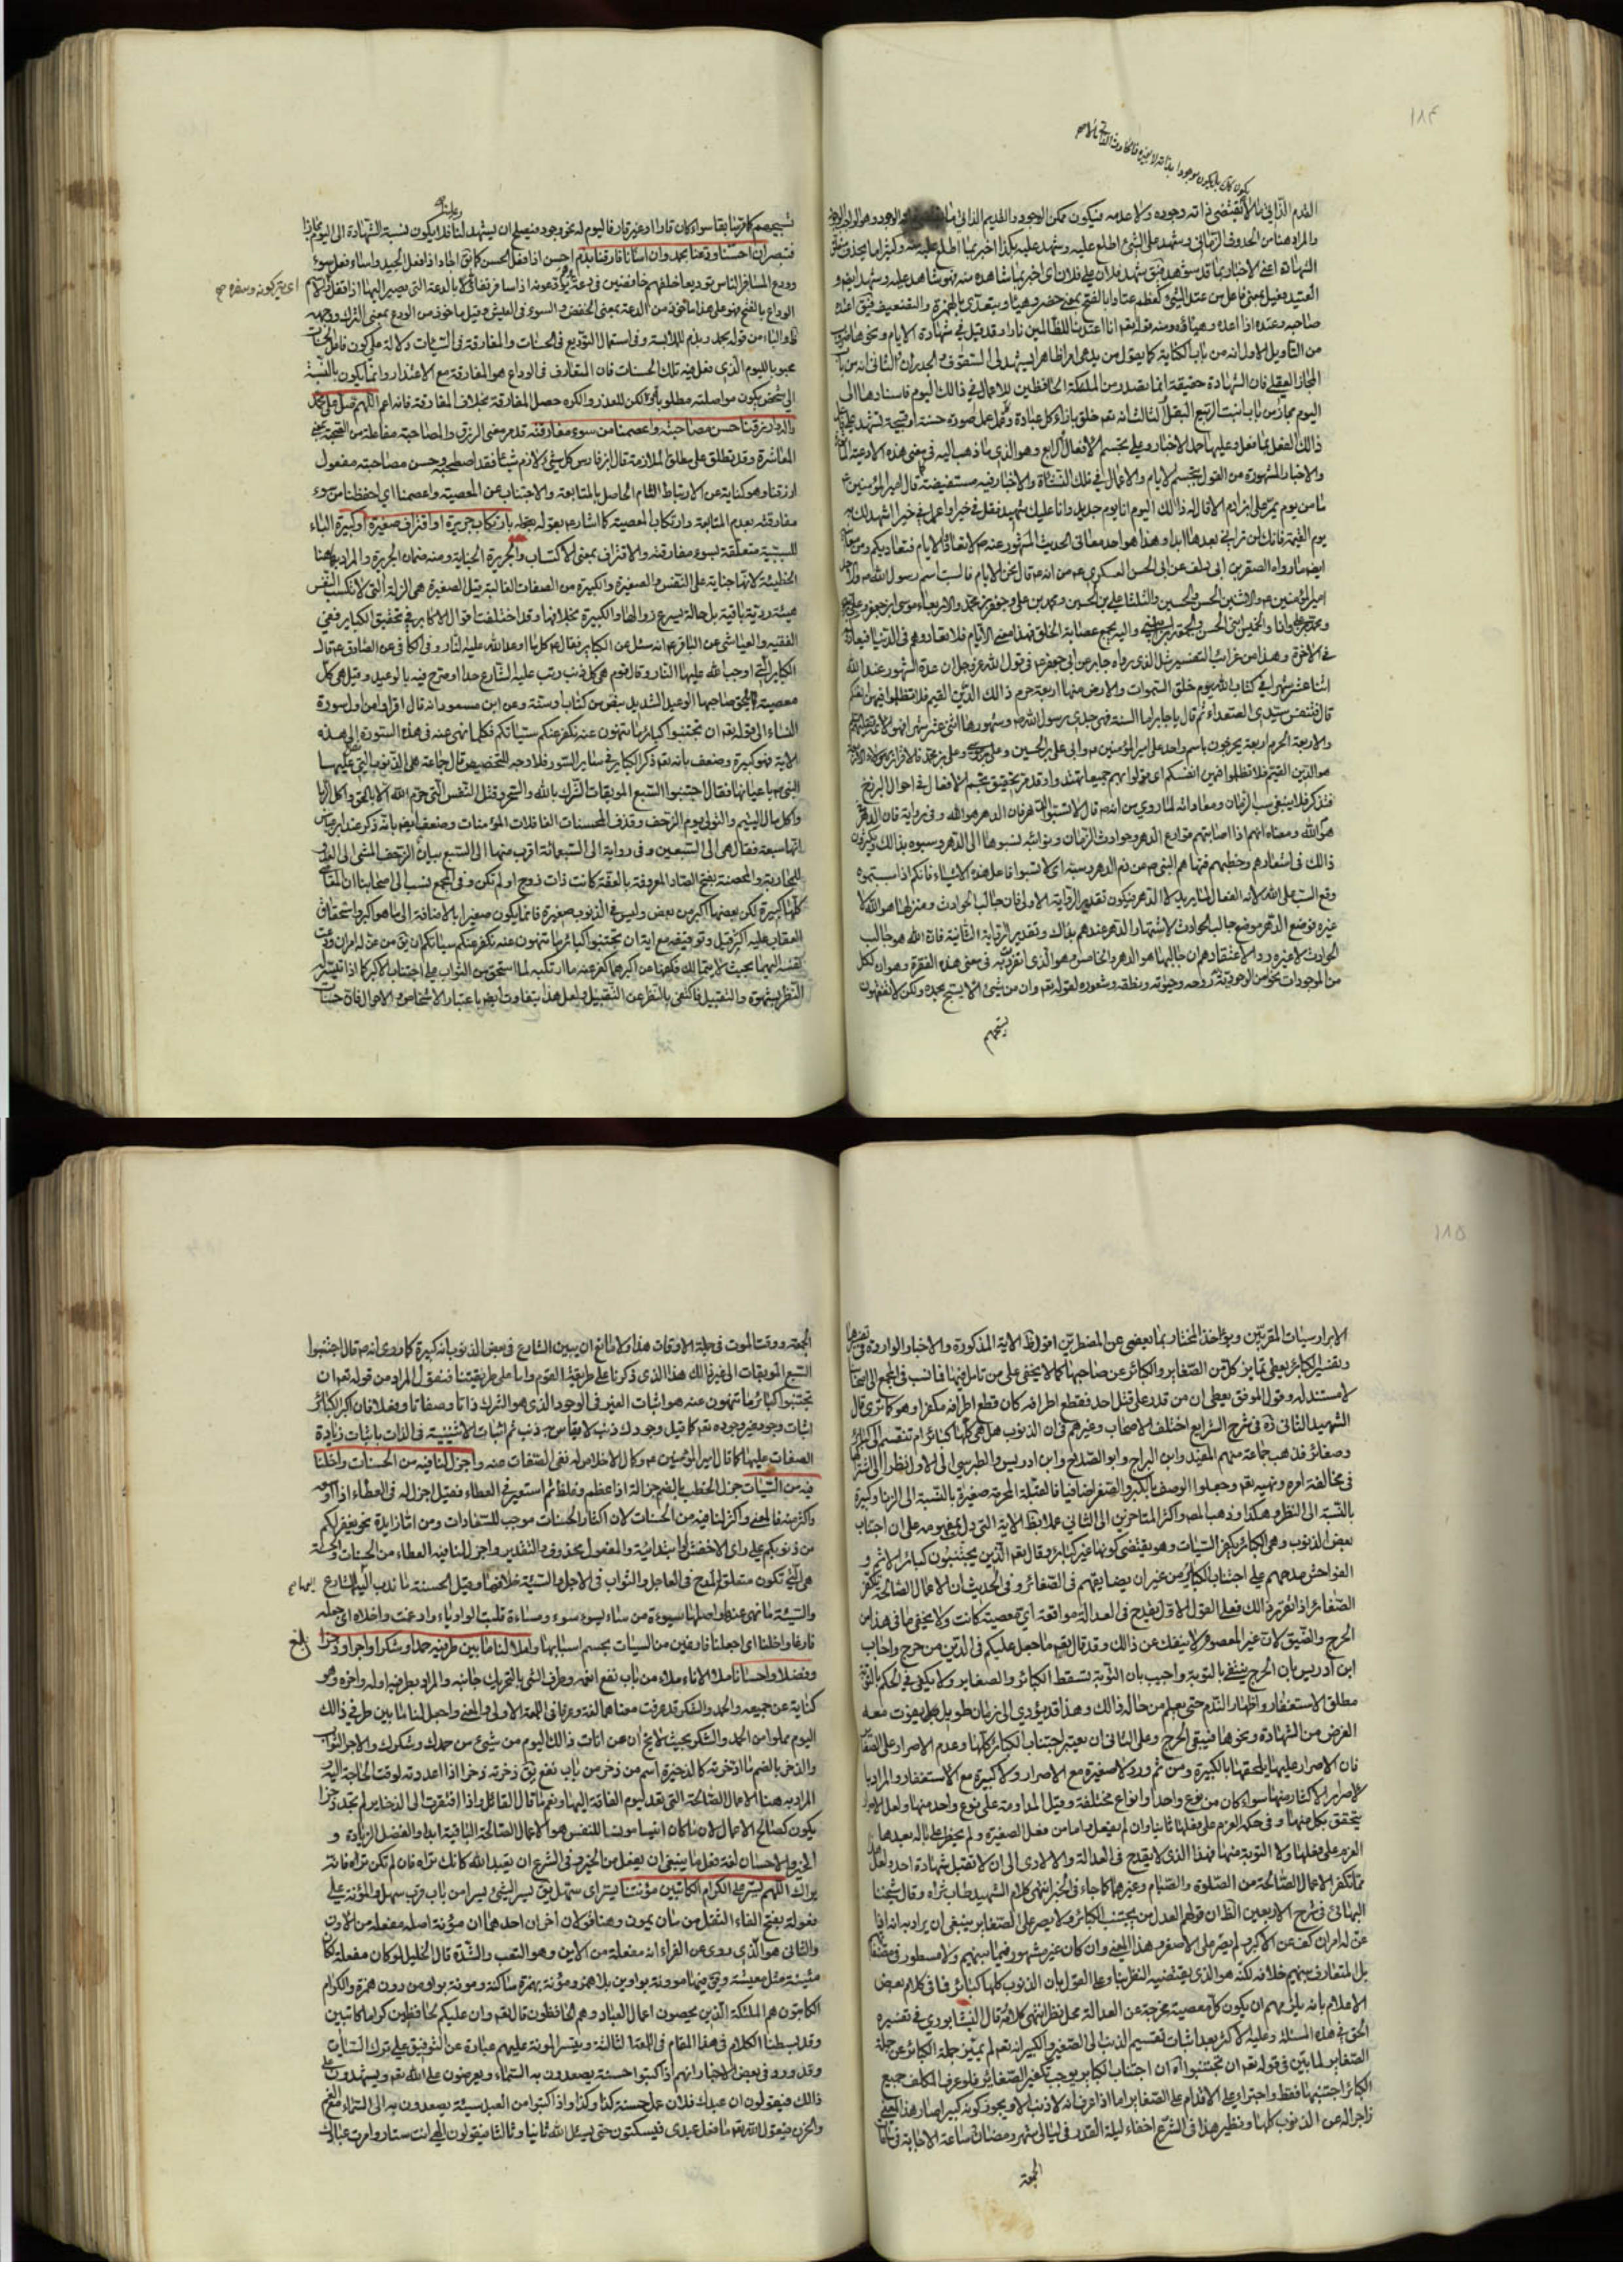 ١٨٤
القدم الذاتي ما لا تقتضي ذاته وجوده ولا عدمه فيكون ممكن الوجود والقديم الذاتي
والمراد هنا من الحدوث الزماني وشهد على الشيء اطلع عليه وشهد عليه بكذا اخبر بما اطلع عليه منه
الشهادة اعنى الاخبار بما قد
العتيد فعيل بمعنى فاعل من عتد الشيء كعظم عتادا بالفتح بمعنى حضر وتهيأ ويتعدى بالهمزة والتضعيف فيق اعتده
صاحبه وعتده اذا اعده وهيأه ومنه قوله تعم انا اعتدنا للظالمين نارا وقد قيل في شهادة الايام ونحوها
من التأويل الاول انه من باب الكناية كما يقول من يدعى امرا ظاهرا يشهد لى السقوف والجدران الثاني انه من باب
المجاز العقلي فان الشهادة حقيقة انما تصدر من الملئكة الحافظين للاعمال في ذالك اليوم فاسنادها الى
اليوم مجاز من باب انبت الربيع البقل الثالث انه تعم خلق بازاء كل عبادة وكل عمل صورة حسنة او قبيحة تشهد
ذالك الفعل بما فعل وعليها حمل الاخبار وعلى تجسم الافعال الرابع وهو الذي ما ذهب اليه في معنى هذه الادعية
والاخبار المشهورة من القول بتجسم الايام والاعمال في تلك النشأة والاخبار فيه مستفيضة قال امير المؤمنين ع
ما من يوم يمر على ابن ادم الا قال له ذالك اليوم انا يوم جديد وانا عليك شهيد فقل في خيرا واعمل في خيرا اشهد لك به
يوم القيمة فانك لن تراني بعدها ابدا وهذا هو احد معاني الحديث المشهور عنه ص لا تعادوا الايام فتعاديكم
ايضا ما رواه الصقر بن ابي دلف عن ابي الحسن العسكري ع انه قال نحن الايام فالسبت اسم رسول الله ص والاحد
امير المؤمنين ع والاثنين الحسن والحسين والثلثا علي بن الحسين ومحمد بن علي وجعفر بن محمد والاربعاء موسى بن جعفر
في الاخرة وهذا من غرائب التفسير مثل الذي رواه جابر عن ابي جعفر ع في قول الله عز وجل ان عدة الشهور عند الله
اثنا عشر شهرا في كتاب الله يوم خلق السموات والارض منها اربعة حرم ذالك الدين القيم فلا تظلموا فيهن انفسكم
قال فتنفس سيدي الصعداء ثم قال يا جابر اما السنة فهي جدي رسول الله ص وشهورها اثنى عشر شهرا
هو الدين القيم فلا تظلموا فيهن انفسكم اي قولوا بهم جميعا تهتدوا وقد مر تحقيق تجسم الافعال في احوال البرزخ
فتذكر فلا ينبغي سب الزمان ومعاداته لما روى من انه ص قال لا تسبوا الدهر فان الدهر هو الله وفى رواية فان الدهر
هو الله ومعناه انهم اذا اصابتهم قوارع الدهر وحوادث الزمان ونوائبه نسبوها الى الدهر وسبوه بذالك
ذالك في اشعارهم وخطبهم فنهاهم النبي ص عن ذم الدهر وسبه اى لا تسبوا فاعل هذه الاشياء فانكم اذا سببتموه
وقع السب على الله لانه الفعال لما يريد لا الدهر فيكون تقدير الرواية الاولى فان جالب الحوادث ومنزلها هو الله لا
غيره فوضع الدهر موضع جالب الحوادث لاشتهار الدهر عندهم بذالك وتقدير الرواية الثانية فان الله هو جالب
الحوادث لا غيره ردا لاعتقادهم ان جالبها هو الدهر الخامس وهو الذي في معنى هذه الفقرة وهو ان لكل
من الموجودات نحو من الوجود وحيوته ونطقه وشعوره لقوله تعم وان من شيئ الا يسبح بحمده ولكن لا تفقهون
تسبيحهم
فتبصر ان احسنا ودعنا بحمد وان اسأنا فارقنا بذم احسن اذا فعل الحسن كما يق اجاد اذا فعل الجيد واساء فعل سوء
الوداع بالفتح فهو على هذا مأخوذ من الدعة بمعنى الخفض والسوء في العيش وقيل مأخوذ من الودع بمعنى الترك
محبوبا لليوم الذي فعل فيه تلك الحسنات فان المتعارف في الوداع هو المفارقة مع الاعتذار وانما يكون بالنسبة
الى شخص يكون مواصلته مطلوبا لكن للعذر والكره حصل المفارقة بخلاف المفارقة فانه اعم اللهم صل على محمد
واله وارزقنا حسن مصاحبته واعصمنا من سوء مفارقته قد مر معنى الرزق والمصاحبة مفاعلة من الصحبة بمعنى
المعاشرة وقد تطلق على مطلق الملازمة قال ابن فارس كل شيئ لازم شيئا فقد اصطحبه وحسن مصاحبته مفعول
ارزقنا وهو كناية عن الارتباط التام الحاصل بالمتابعة والاجتناب عن المعصية واعصمنا اي احفظنا من سوء
مفارقته بعدم المتابعة وارتكاب المعصية كما اشار ع بقوله بارتكاب جريرة او اقتراف صغيرة او كبيرة الباء
للسببية متعلقة بسوء مفارقته والاقتراف بمعنى الاكتساب والجريرة الجناية ومنه ضمان الجريرة والمراد بها هنا
الخطيئة لانها جناية على النفس والصغيرة والكبيرة من الصفات الغالبة قيل الصغيرة هى الزلة التى لا تكسب النفس
هيئة ردية باقية بل حالة يسرع زوالها والكبيرة بخلافها وقد اختلفت اقوال الاكابر في تحقيق الكباير ففى
الفقيه والعياشي عن الباقر ع انه سئل عن الكباير فقال ع كل ما اوعد الله عليه النار وفى الكافى عن الصادق ع قال
الكباير التي اوجب الله عليها النار وقال قوم هى كل ذنب رتب عليه الشارع حدا او صرح فيه بالوعيد وقيل هى كل
معصية يلحق صاحبها الوعيد الشديد بنص من كتاب او سنة وعن ابن مسعود انه قال اقرأوا من اول سورة
النساء الى قوله تعم ان تجتنبوا كبائر ما تنهون عنه نكفر عنكم سيئاتكم فكلما نهى عنه في هذه السورة الى هذه
الاية فهو كبيرة وضعف بانه تعم ذكر الكباير في ساير السور فلا وجه للتخصيص قال جماعة هى الذنوب التي
النبي ص باعيانها فقال اجتنبوا السبع الموبقات الشرك بالله والسحر وقتل النفس التى حرم الله الا بالحق واكل الربا
واكل مال اليتيم والتولي يوم الزحف وقذف المحصنات الغافلات المؤمنات وضعف ايضا بانه ذكر عند ابن عباس
انها سبعة فقال هى الى السبعين وفى رواية الى السبعمائة اقرب منها الى السبع بيان الزحف المشي الى العدو
للمحاربة والمحصنة بفتح الصاد المعروفة بالعفة كانت ذات زوج او لم تكن وفى المجمع نسب الى اصحابنا ان المعاصى
كلها كبيرة لكن بعضها اكبر من بعض وليس في الذنوب صغيرة فانما يكون صغيرا بالاضافة الى ما هو اكبر واستحقاق
العقاب عليه اكثر قيل وتوفيقه مع اية ان تجتنبوا كبائر ما تنهون عنه نكفر عنكم سيئاتكم ان يق من عن له امران ودعت
نفسه اليهما بحيث لا يتمالك فكفها عن اكبرهما كفر عنه ما ارتكبه لما استحق من الثواب على اجتناب الاكبر كما اذا تيسر له
النظر بشهوة والتقبيل فاكتفى بالنظر عن التقبيل ولعل هذا يتفاوت ايضا باعتبار الاشخاص والاحوال فان حسنات
١٨٥
الابرار سيئات المقربين ويؤاخذ المختار بما يعفى عن المضطرين اقول ظ الاية المذكورة والاخبار الواردة في
وتفسير الكبائر يعطى تمايز كل من الصغاير والكبائر عن صاحبها كما لا يخفى على من تأمل فيها فما نسب في المجمع الى اصحابنا
لا مستند له وقول الموفق يعطى ان من قدر على قتل احد فقطع اطرافه كان قطع اطرافه مكفرا وهو كما ترى قال
الشهيد الثانى ره في شرح الشرايع اختلف الاصحاب وغيرهم فى ان الذنوب هل هى كلها كبائر ام تنقسم الى كبائر
وصغائر فذهب جماعة منهم المفيد وابن البراج وابو الصلاح وابن ادريس والطبرسي الى الاول نظرا الى
فى مخالفة امره ونهيه تعم وجعلوا الوصف بالكبر والصغر اضافيا فالقبلة المحرمة صغيرة بالنسبة الى الزنا وكبيرة
بالنسبة الى النظر وهكذا وذهب المص واكثر المتاخرين الى الثاني عملا بظ الاية التى دل بمفهومه على ان اجتناب
بعض الذنوب وهى الكبائر يكفر السيئات وهو يقتضى كونها غير كبائر وقال تعم الذين يجتنبون كبائر الاثم و
الفواحش مدحهم على اجتناب الكبائر من غير ان يضايقهم في الصغائر وفى الحديث ان الاعمال الصالحة تكفر
الصغائر اذا تقرر ذالك فعلى القول الاول يقدح في العدالة مواقعة اي معصية كانت ولا يخفى ما فى هذا من
الحرج والضيق لان غير المعصوم لا ينفك عن ذالك وقد قال تعم ما جعل عليكم فى الدين من حرج واجاب
ابن ادريس بان الحرج ينتفى بالتوبة واجيب بان التوبة تسقط الكبائر والصغاير ولا يكفى في الحكم بالتوبة
مطلق الاستغفار واظهار الندم حتى يعلم من حاله ذالك وهذا قد يؤدي الى زمان طويل يفوت معه
الغرض من الشهادة ونحوها فيبقى الحرج وعلى الثانى ان يعتبر اجتناب الكبائر كلها وعدم الاصرار على الصغاير
فان الاصرار عليها يلحقها بالكبيرة ومن ثم ورد لا صغيرة مع الاصرار ولا كبيرة مع الاستغفار والمراد با
لاصرار الاكثار منها سواء كان من نوع واحد او انواع مختلفة وقيل المداومة على نوع واحد منها ولعل الاصرار
يتحقق بكل منهما وفى حكمه العزم على فعلها ثانيا وان لم يفعل واما من فعل الصغيرة ولم يخطر على باله بعدها
العزم على فعلها ولا التوبة منها فهذا الذى لا يقدح فى العدالة والا لادى الى ان لا تقبل شهادة احد ولعل هذا
مما تكفر الاعمال الصالحة من الصلوة والصيام وغيرهما كما جاء فى الخبر انتهى كلام الشهيد طاب ثراه وقال شيخنا
البهائى في شرح الاربعين الظ ان قولهم العدل من يجتنب الكبائر ولا يصر على الصغاير ينبغى ان يراد به انه اذا
عن له امران كف عن الاكبر ولم يصر على الاصغر وهذا المعنى وان كان غير مشهور فيما بينهم ولا مسطور فى
بل المتعارف بينهم خلافه لكنه هو الذى يقتضيه النظر بناء على القول بان الذنوب كلها كبائر فما فى كلام بعض
الاعلام بانه يلزمهم ان يكون كل معصية مخرجة عن العدالة محل نظر انتهى كلامه قال النيشابوري في تفسيره
الحق في هذه المسئلة وعليه الاكثر بعد اثبات تقسيم الذنب الى الصغير والكبير انه تعم لم يميز جملة الكبائر عن جملة
الصغاير لما بين فى قوله تعم ان تجتنبوا اه ان اجتناب الكباير يوجب تكفير الصغاير فلو عرف المكلف جميع
الكبائر اجتنبها فقط واجترأ على الاقدام على الصغاير اما اذا عرف انه لا ذنب الا ويجوز كونه كبيرا صار هذا المعنى
زاجرا له عن الذنوب كلها ونظير هذا فى الشرع اخفاء ليلة القدر فى ليالي شهر رمضان وساعة الاجابة فى ساعات
الجمعة
الجمعة ووقت الموت فى جملة الاوقات هذا ولا مانع ان يبين الشارع فى بعض الذنوب انه كبيرة كما روى انه ص قال اجتنبوا
السبع الموبقات الى غير ذالك هذا الذى ذكرنا على طريقة القوم واما على طريقتنا فنقول المراد من قوله تعم ان
تجتنبوا كبائر ما تنهون عنه هو اثبات الغير فى الوجود الذى هو الشرك ذاتا وصفاتا وفعلا فان اكبر الكبائر
اثبات وجود غير وجوده تعم كما قيل وجودك ذنب لا يقاس به ذنب ثم اثبات الاثنينية فى الذات باثبات زيادة
الصفات عليها كما قال امير المؤمنين ع وكمال الاخلاص له نفى الصفات عنه واجزل لنا فيه من الحسنات واخلنا
فيه من السيئات جزل الحطب بالضم جزالة اذا عظم وغلظ ثم استعير فى العطاء فقيل اجزل له فى العطاء اذا اوسعه
واكثر منه فالمعنى واكثر لنا فيه من الحسنات لان اكثار الحسنات موجب للسعادات ومن اما زايدة نحو يغفر لكم
من ذنوبكم على راى الاخفش او ابتدائية والمفعول محذوف والتقدير واجزل لنا فيه العطاء من الحسنات والحسنة
هى التي تكون متعلق المدح فى العاجل والثواب فى الاجل والسيئة خلافها وقيل الحسنة ما ندب اليها الشارع
والسيئة ما نهى عنها واصلها سيوءة من ساء يسوء سوء ومساءة قلبت الواو ياء وادغمت واخلاه اى جعله
فارغا واخلنا اى اجعلنا فارغين من السيئات بحسم اسبابها واملأ لنا ما بين طرفيه حمدا وشكرا واجرا وذخرا
وفضلا واحسانا ملأ الاناء ملاء من باب نفع انعمه وطرف الشى بالتحريك جانبه والمراد بطرفيه اوله واخره وهو
كناية عن جميعه والحمد والشكر قد عرفت معناهما لغة وعرفا فى اللمعة الاولى والمعنى واجعل لنا ما بين طرفي ذالك
اليوم مملوا من الحمد والشكر بحيث لا يخ ان من انات ذالك اليوم من شيئ من حمدك وشكرك والاجر الثواب
والذخر بالضم ما ادخرته كالذخيرة اسم من ذخر من باب نفع يق ذخرته ذخرا اذا اعددته لوقت الحاجة اليه
المراد به هنا الاعمال الصالحة التى تعد ليوم الفاقة اليها ونعم ما قال القائل واذا افتقرت الى الذخاير لم تجد ذخرا
يكون كصالح الاعمال لان ما كان انيسا مونسا للنفس هو الاعمال الصالحة الباقية ابدا والفضل الزيادة و
الخير والاحسان لغة فعل ما ينبغى ان يفعل من الخير وفى الشرع ان يعبد الله كانك تراه فان لم تكن تراه فانه
يراك اللهم يسر على الكرام الكاتبين مؤنتنا يسر اى سهل يق يسر الشيئ يسرا من باب قرب سهل والمؤنة على
فعولة بفتح الفاء الثقل من مان يمون وهنا قولان اخران احدهما ان مؤنة اصله مفعلة من الاون
والثانى هو الذى روى عن الفراء انه مفعلة من الاين وهو التعب والشدة قال الخليل لو كان مفعلة لكان
مئينة مثل معيشة ويق فيها موونة بواوين بلا همز ومؤنة بهمزة ساكنة ومونة بواو من دون همزة والكرام
الكاتبون هم الملئكة الذين يحصون اعمال العباد وهم الحافظون قال تعم وان عليكم لحافظين كراما كاتبين
وقد بسطنا الكلام فى هذا المقام فى اللمعة الثالثة وتيسر المونة عليهم عبارة عن التوفيق على ترك السيئات
وقد ورد فى بعض الاخبار انهم اذا كتبوا حسنة يصعدون به السماء ويعرضون على الله تعم ويشهدون على
ذالك فيقولون ان عبدك فلان عمل حسنة كذا وكذا واذا كتبوا من العبد سيئة يصعدون به الى السماء مع الغم
والحزن فيقول الله تعم ما فعل عبدى فيسكتون حتى يسئل الله ثانيا وثالثا فيقولون الهى انت ستار وامرت عبادك